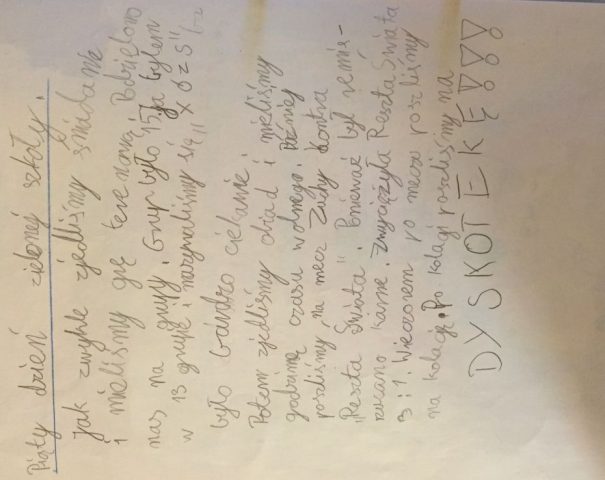 Piąty dzień zielonej szkoły.
Jak zwykle zjedliśmy śniadanie
i mieliśmy grę terenową. Podzielono
nas na grupy. Grup było 15. Ja byłem
w 13 grupie, nazywaliśmy się „
było bardzo ciekawie.
Potem zjedliśmy obiad i mieliśmy
godzinę czasu wolnego. Później
poszliśmy na mecz Żuby kontra
„Reszta Świata". Ponieważ był remis-
rzucano karne. Zwyciężyła Reszta Świata
3:1. Wieczorem po meczu poszliśmy
na kolację. Po kolacji poszliśmy na
DYSKOTEKĘ!!!